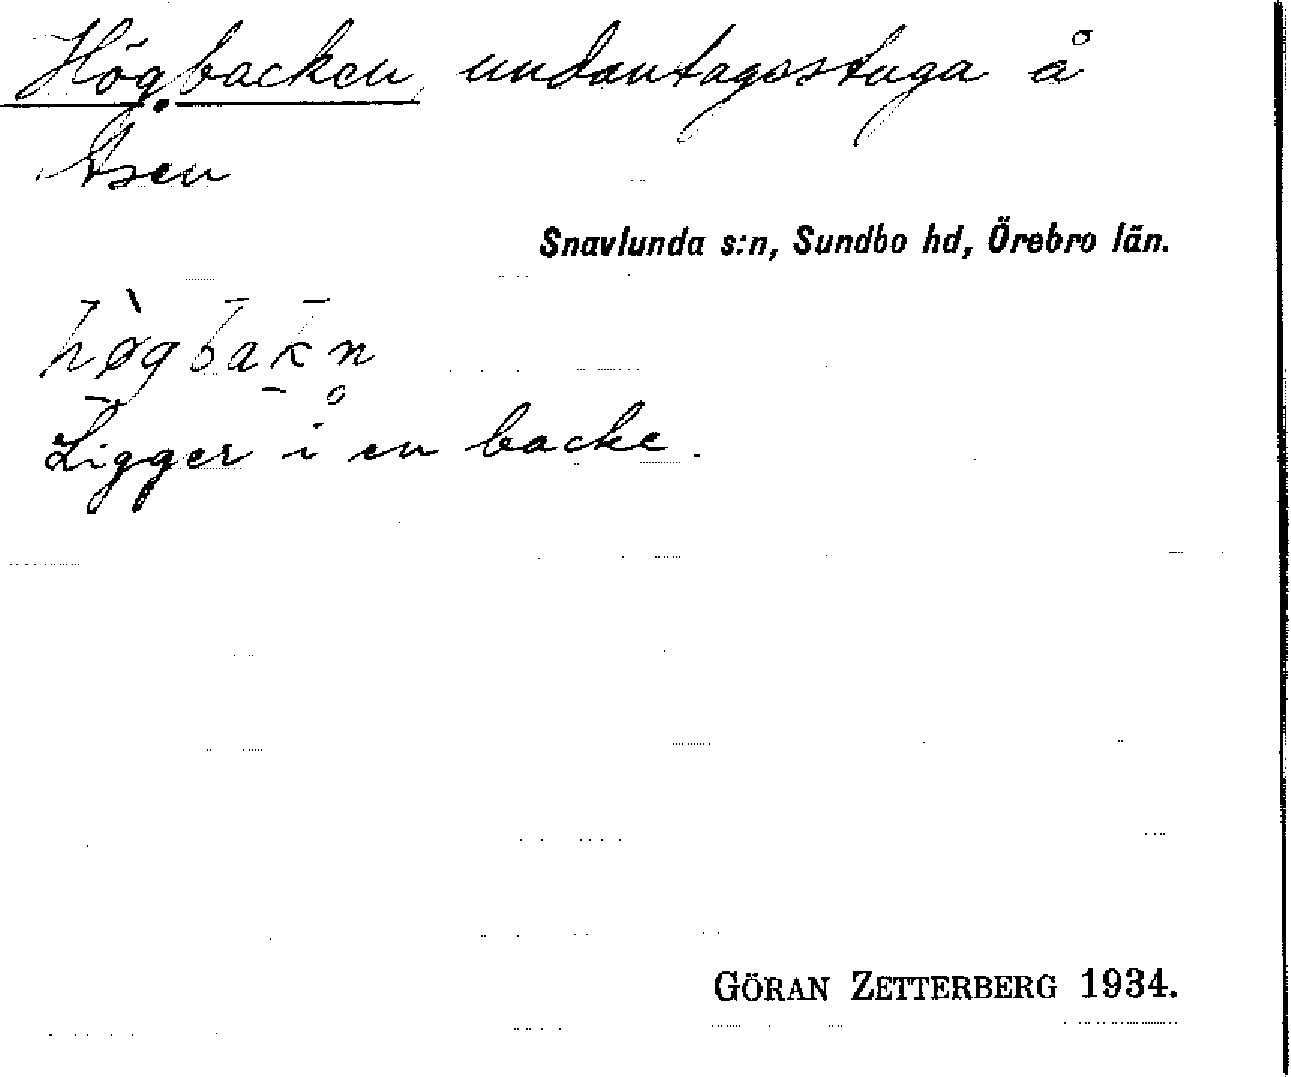 Högbacken undantagsstuga å
Åsen
Snavlunda s:n, Sundbo hd, Örebro län.
hø̀gbakn̥
Ligger i en backe.
GÖRAN ZETTERBERG 1934.